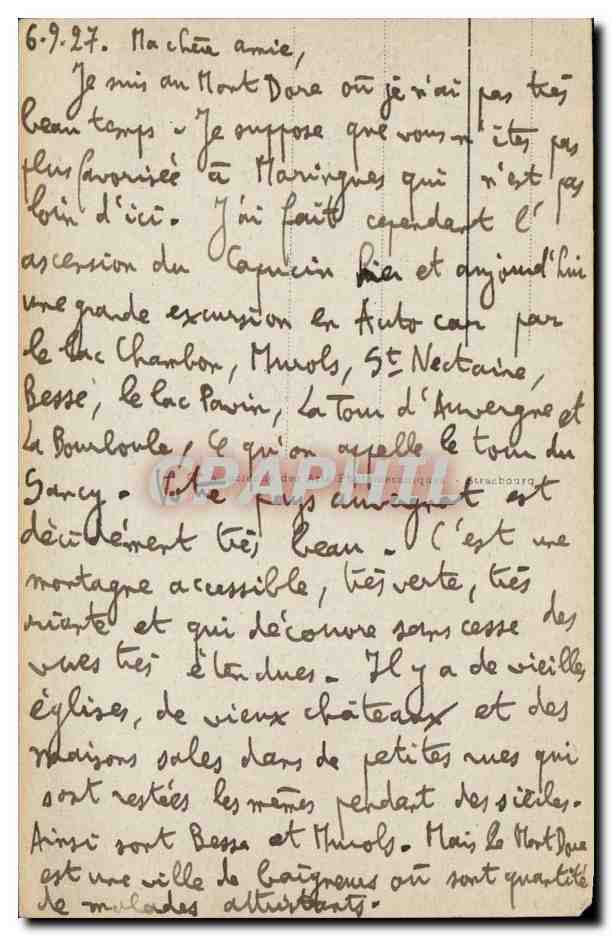 6.9.27. Ma chère amie,
Je suis au Mont Dore où je n'ai pas très
beau temps. Je suppose que vous n'êtes pas
plus favorisée à Maringues qui n'est pas
loin d'ici. J'ai fait cependant l'
ascension du Capucin hier et aujourd'hui
une grande excursion en Auto car par
le lac Chambon, Murols, St Nectaire,
Besse, le lac Pavin, La Tour d'Auvergne et
La Bourboule, ce qu'on appelle le tour du
Sancy. Votre pays auvergnat est
CPAPHIL
Strasbourg
décidément très beau. C'est une
montagne accessible, très verte, très
riante et qui découvre sans cesse des
vues très étendues. Il y a de vieilles
églises, de vieux châteaux et des
maisons sales dans de petites rues qui
sont restées les mêmes pendant des siècles.
Ainsi sont Besse et Murols. Mais le Mont Dore
est une ville de baigneurs où sont quantité
de malades attristants.